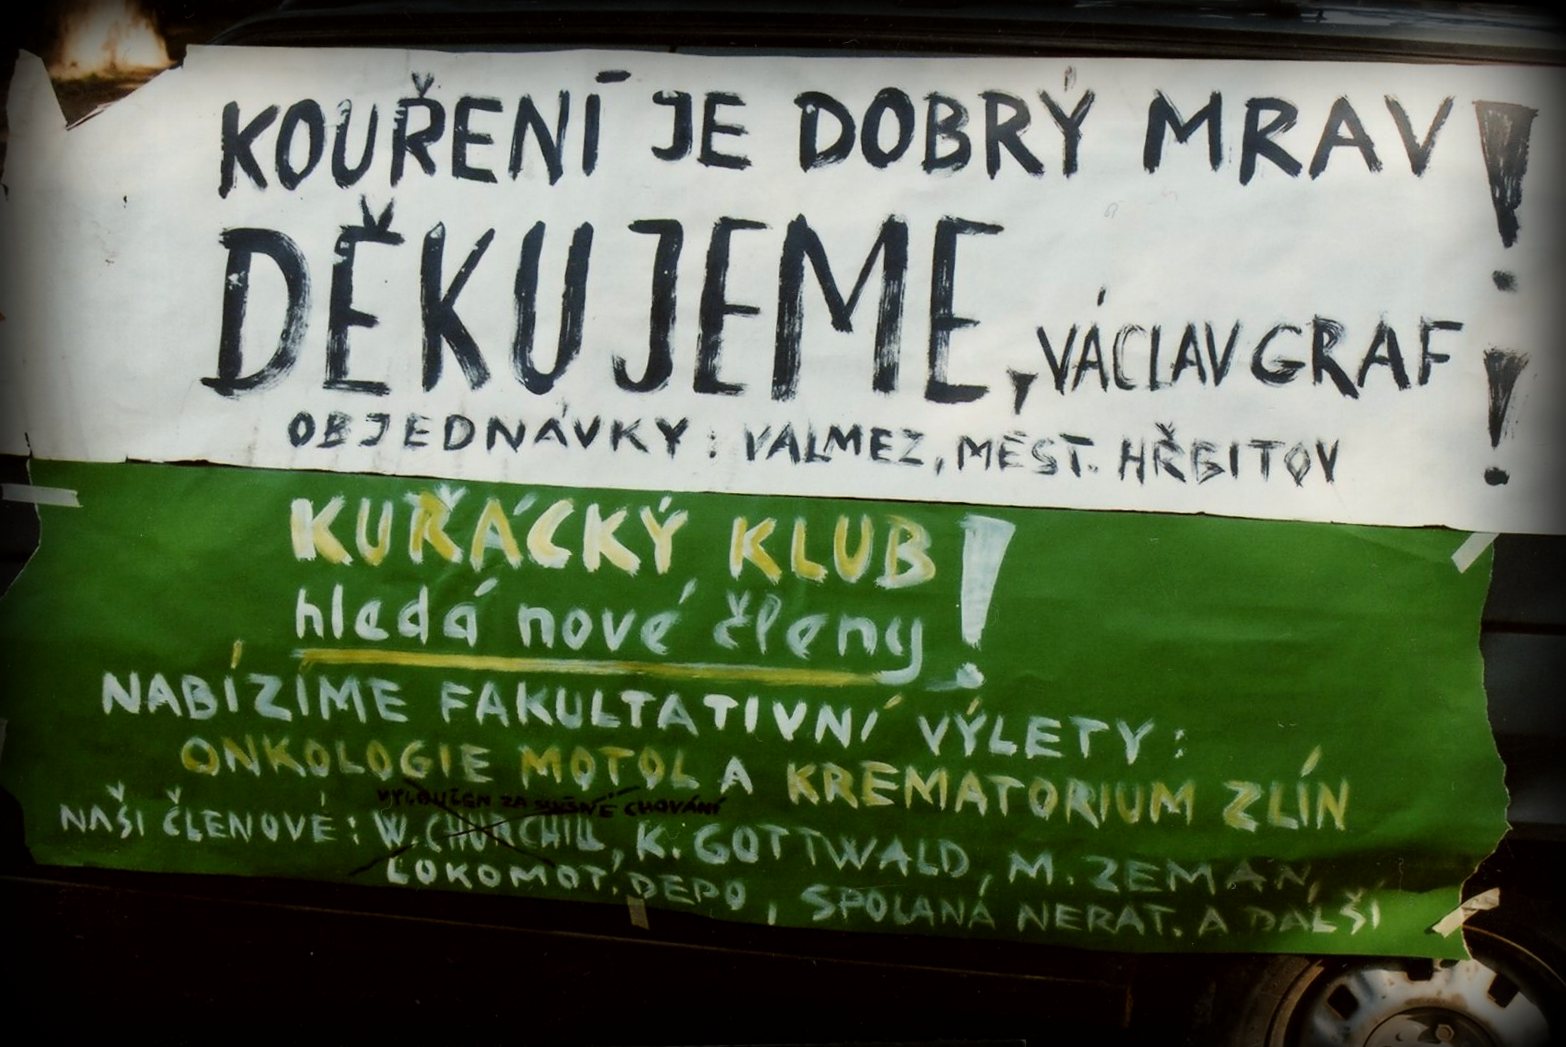 KOUŘENÍ JE DOBRÝ MRAV!
DĚKUJEME, VÁCLAV GRAF!
OBJEDNÁVKY: VALMEZ, MĚST. HŘBITOV
KUŘÁCKÝ KLUB!
hledá nové členy
NABÍZÍME FAKULTATIVNÍ VÝLETY:
ONKOLOGIE MOTOL A KREMATORIUM ZLÍN
VYLOUČEN ZA SLUŠNÉ CHOVÁNÍ
NAŠI ČLENOVÉ: W. CHURCHILL, K. GOTTWALD, M. ZEMAN,
LOKOMOT. DEPO, SPOLANA NERAT. A DALŠÍ